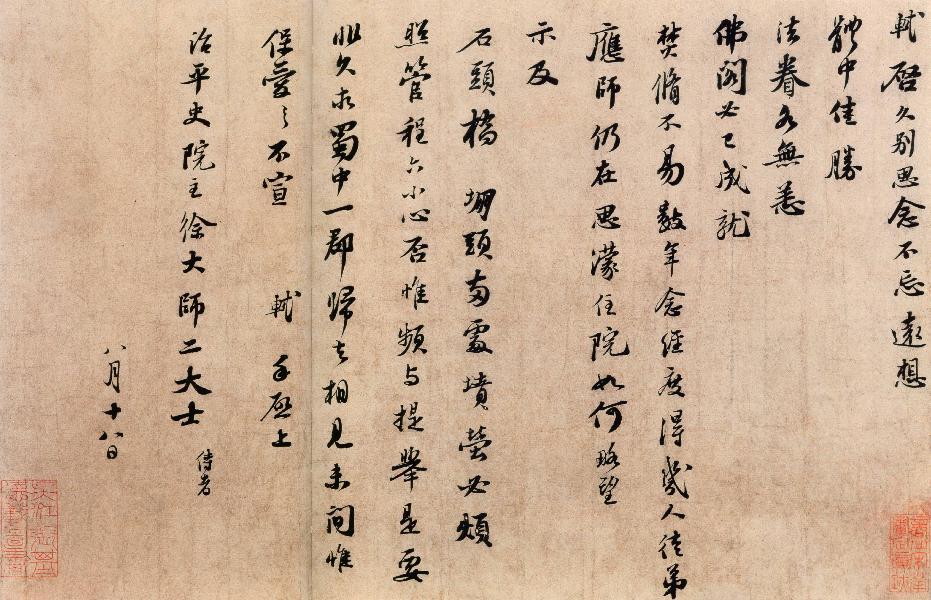 軾啓久别思念不忘遠想
體中佳勝
法眷各無恙
佛閣必已成就
焚脩不易數年念經度得幾人徒弟
應師仍在思濛住院如何略望
示及
石頭橋堋頭兩處墳塋必煩
照管程六小心否惟頻与提舉是要
非久求蜀中一郡歸去相見未間惟
保愛之不宣 軾 手啓上
治平史院主徐大師二大士 侍者
八月十八日